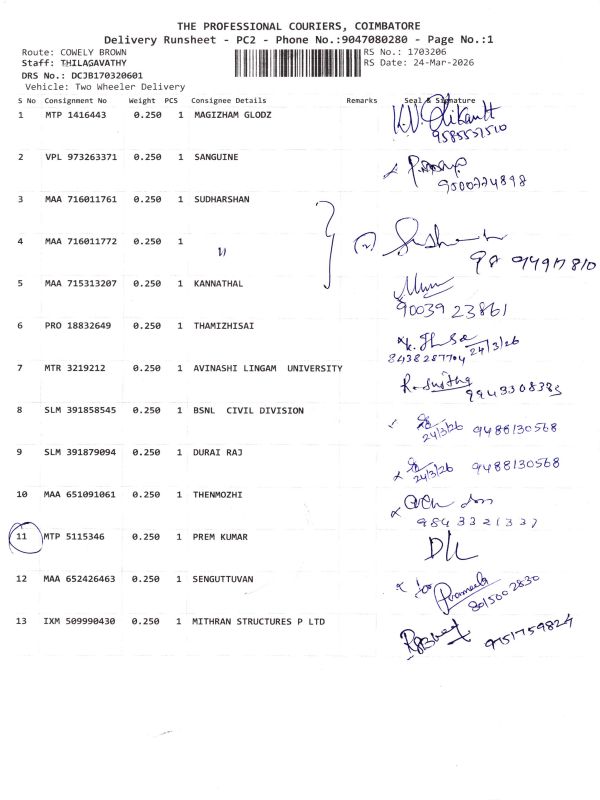 THE PROFESSIONAL COURIERS, COIMBATORE
Delivery Runsheet - PC2 - Phone No.:9047080280 - Page No.:1
Route: COWELY BROWN RS No.: 1703206
Staff: THILAGAVATHY RS Date: 24-Mar-2026
DRS No.: DCJB170320601
Vehicle: Two Wheeler Delivery
S No Consignment No Weight PCS Consignee Details Remarks Seal & Signature
1 MTP 1416443 0.250 1 MAGIZHAM GLODZ
9585551510
2 VPL 973263371 0.250 1 SANGUINE
9500774898
3 MAA 716011761 0.250 1 SUDHARSHAN
4 MAA 716011772 0.250 1 "
5 MAA 715313207 0.250 1 KANNATHAL
90039 23861
6 PRO 18832649 0.250 1 THAMIZHISAI
8438287704 24/3/26
7 MTR 3219212 0.250 1 AVINASHI LINGAM UNIVERSITY
9943308383
8 SLM 391858545 0.250 1 BSNL CIVIL DIVISION
24/3/26 9488130568
9 SLM 391879094 0.250 1 DURAI RAJ
24/3/26 9488130568
10 MAA 651091061 0.250 1 THENMOZHI
9843321337
11 MTP 5115346 0.250 1 PREM KUMAR D/L
12 MAA 652426463 0.250 1 SENGUTTUVAN
8015002830
13 IXM 509990430 0.250 1 MITHRAN STRUCTURES P LTD
9751759824